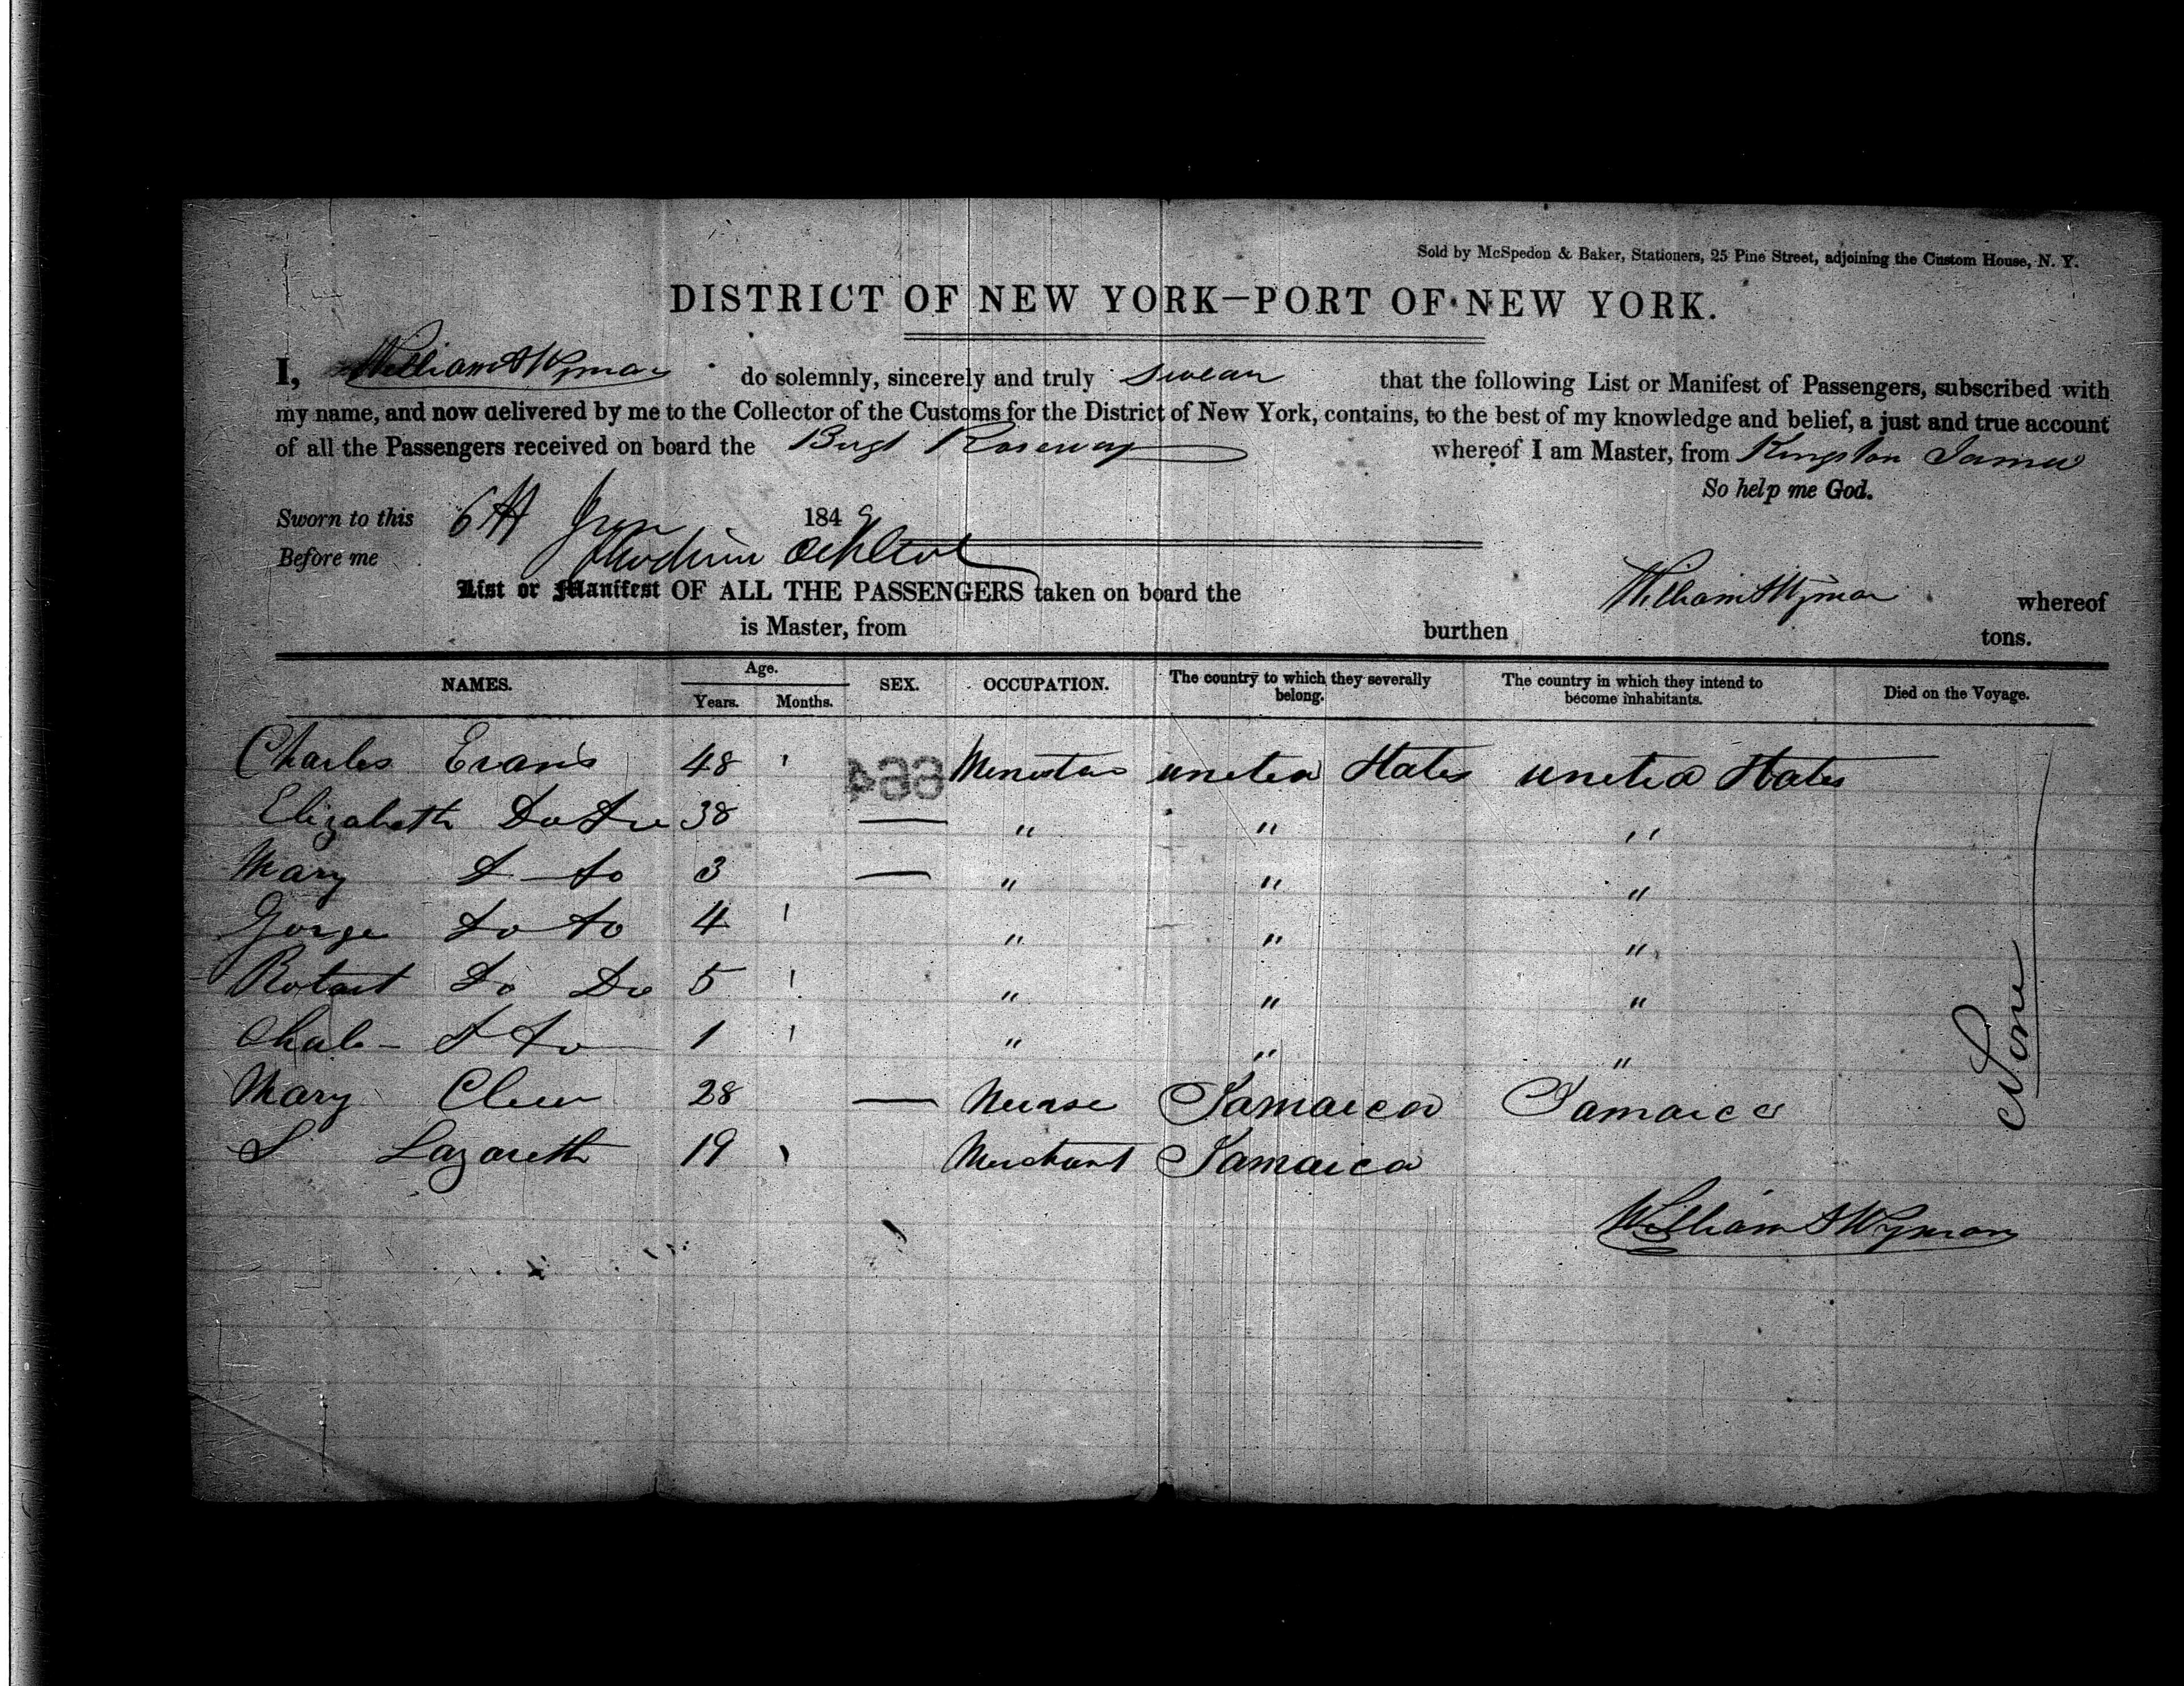 Sold by McSpedon & Baker, Stationers, 25 Pine Street, adjoining the Custom House, N. Y.
DISTRICT OF NEW YORK—PORT OF NEW YORK.
I, William A Wyman do solemnly, sincerely and truly Swear that the following List or Manifest of Passengers, subscribed with
my name, and now delivered by me to the Collector of the Customs for the District of New York, contains, to the best of my knowledge and belief, a just and true account
of all the Passengers received on board the whereof I am Master, from Kingston
So help me God.
Sworn to this 6th 1849
Before me
List or Manifest OF ALL THE PASSENGERS taken on board the William A Wyman whereof
is Master, from burthen tons.
NAMES. Age. Years. Months. SEX. OCCUPATION. The country to which they severally belong. The country in which they intend to become inhabitants. Died on the Voyage.
Charles Evans 48 ' 664 Minister united States united States
Elizabeth Do Do 38 — " " "
Mary D Do 3 — " " "
Gorge Do Do 4 ' " " "
Robart Do Do 5 ' " " "
D Do 1 ' " " "
Mary 28 — Nurse Jamaica Jamaica
S Lazareth 19 ' Merchant Jamaica
None
William A Wyman